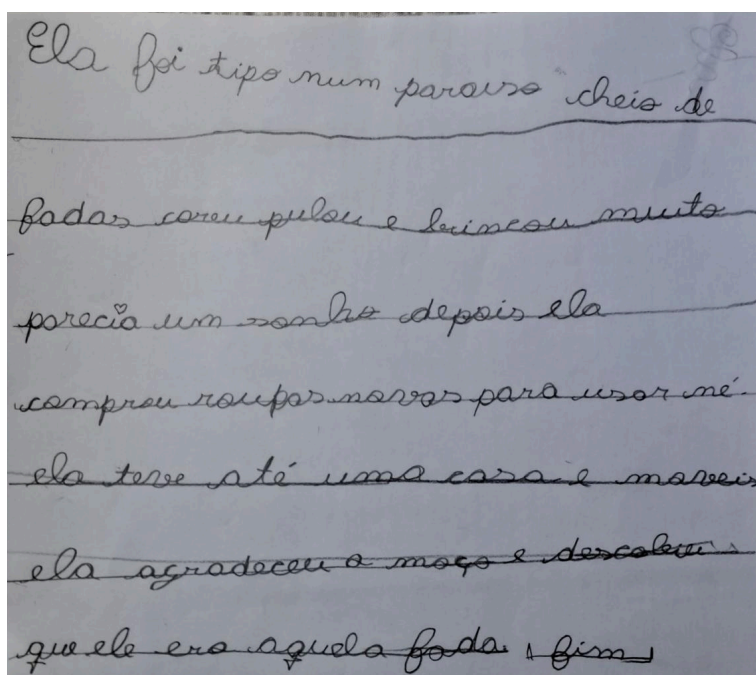 Ela foi tipo num paraiso cheio de
fadas coreu pulou e brincou muito
parecia um sonho depois ela
comprou roupas novas para usar né.
ela teve até uma casa e moveis
ela agradeceu o moço e descobriu
que ele era aquela fada. fim